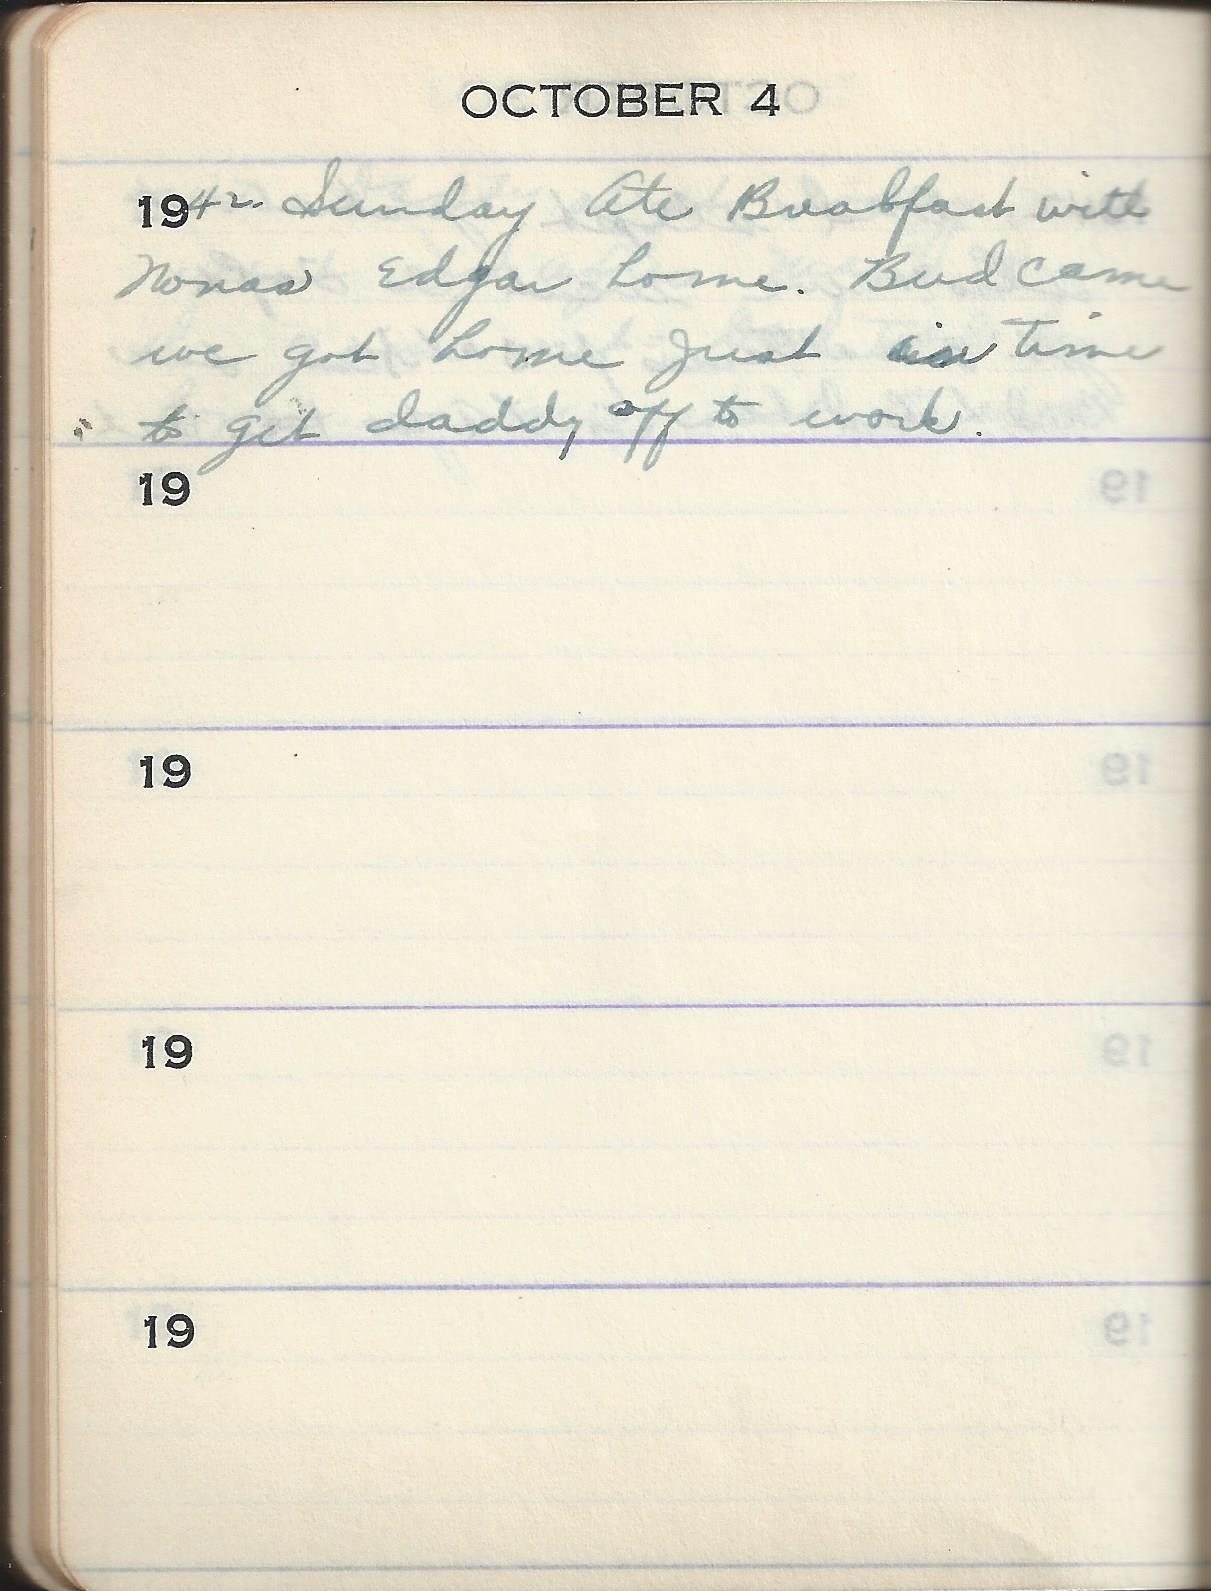 OCTOBER 4
1942. Sunday Ate Breakfast with
Nonas Edgar home. Bud came
we got home Just in Time
to get daddy off to work.
19
19
19
19